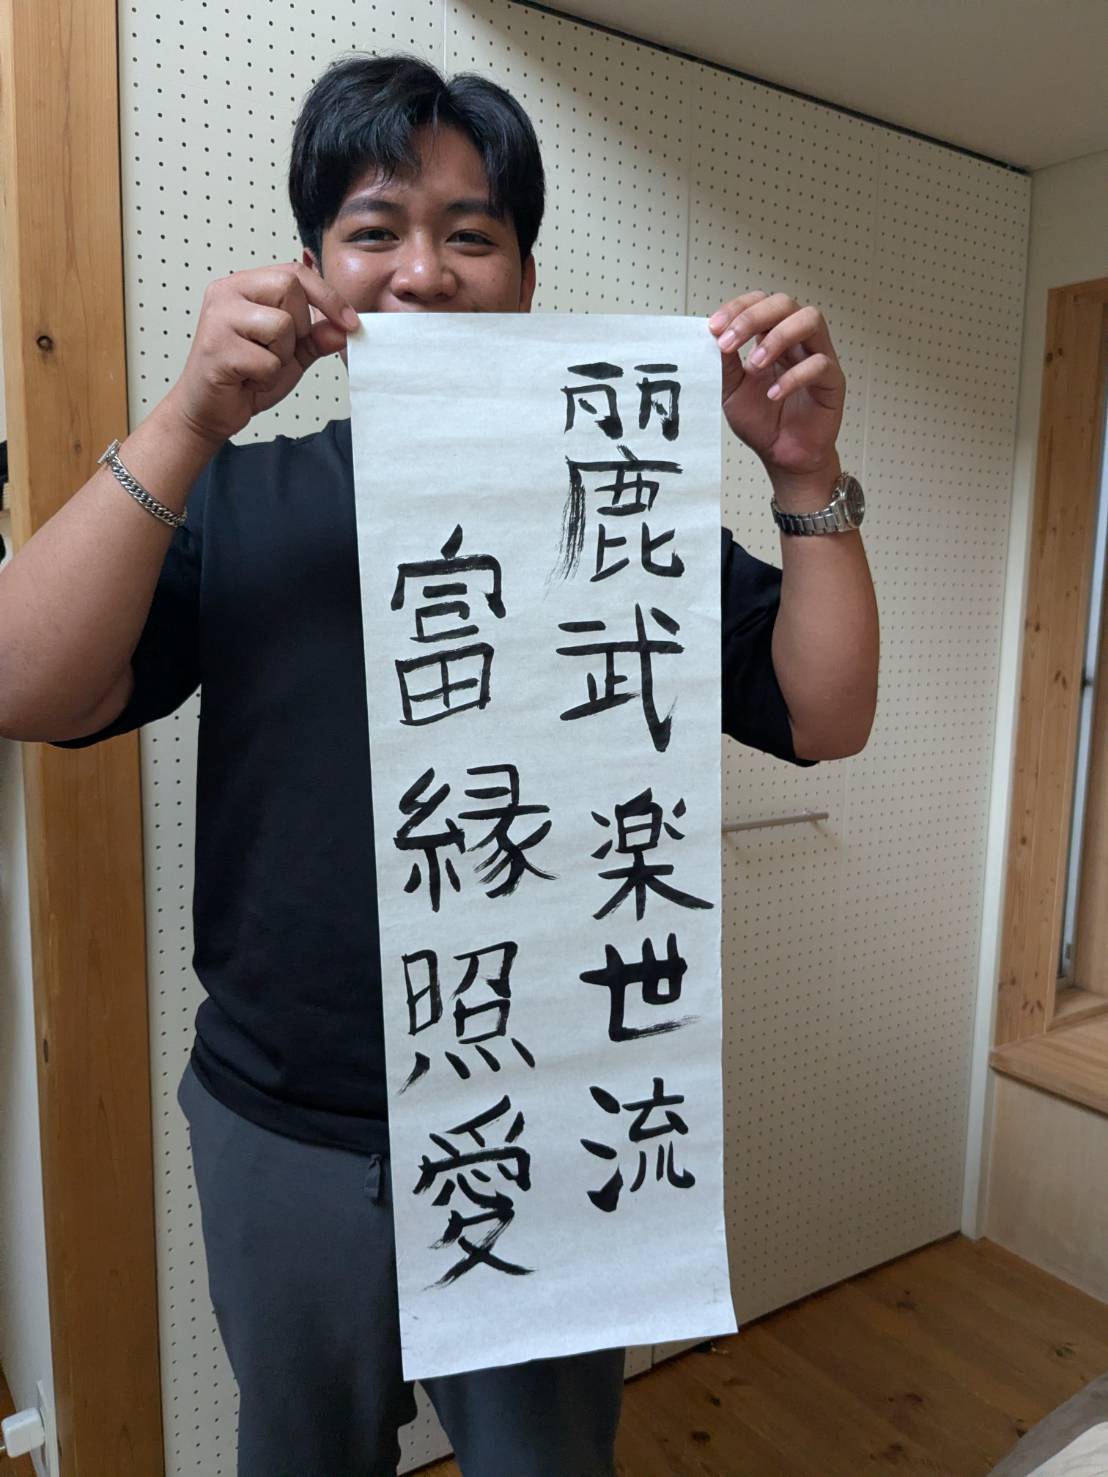 麗武楽世流
富縁照愛